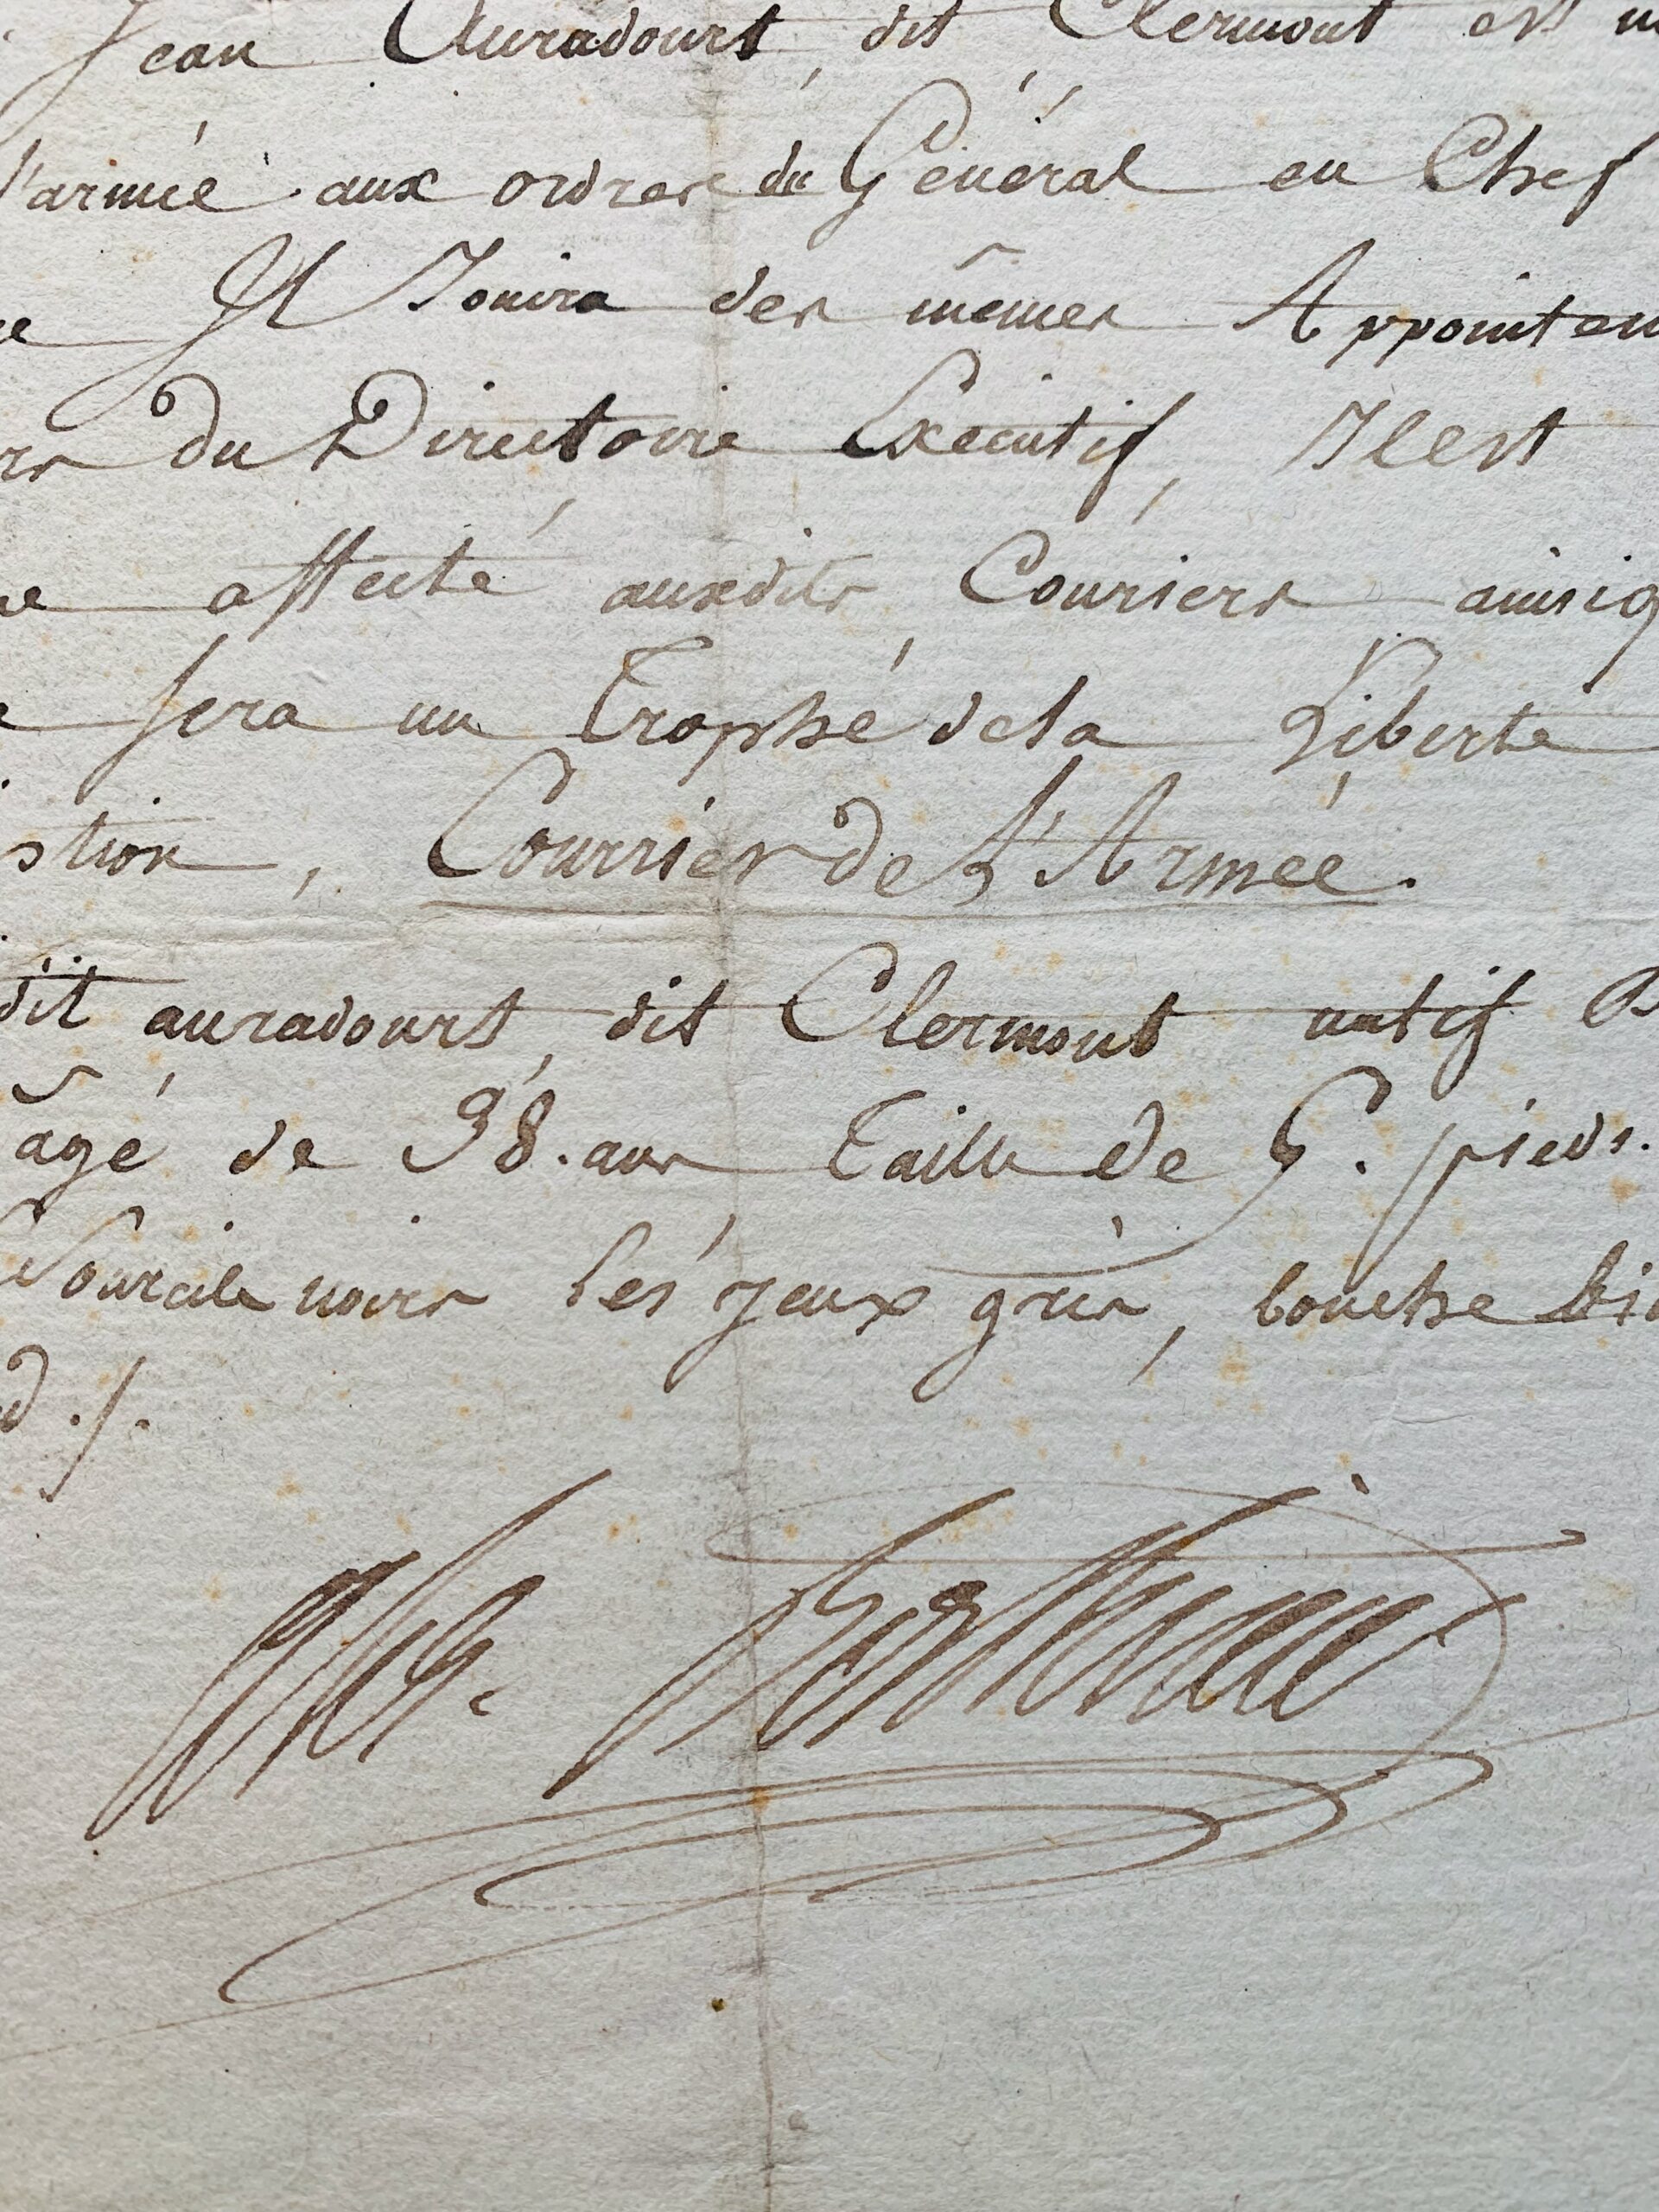 Jean Auradourt, dit Clermont est
l'armée aux ordres du Général en Chef
Il Jouira des mêmes Appointem
rs du Directoire Executif, Il est
affecté auxdits Couriers ainsi q
sera un Trophé de la Liberté
stion, Courrier de L'Armée.
dit auradourt, dit Clermont natif
agé de 38. ans Taille de 5. pieds.
Sourcils noirs les yeux gris, bouche
d ./.
Alex. Berthier